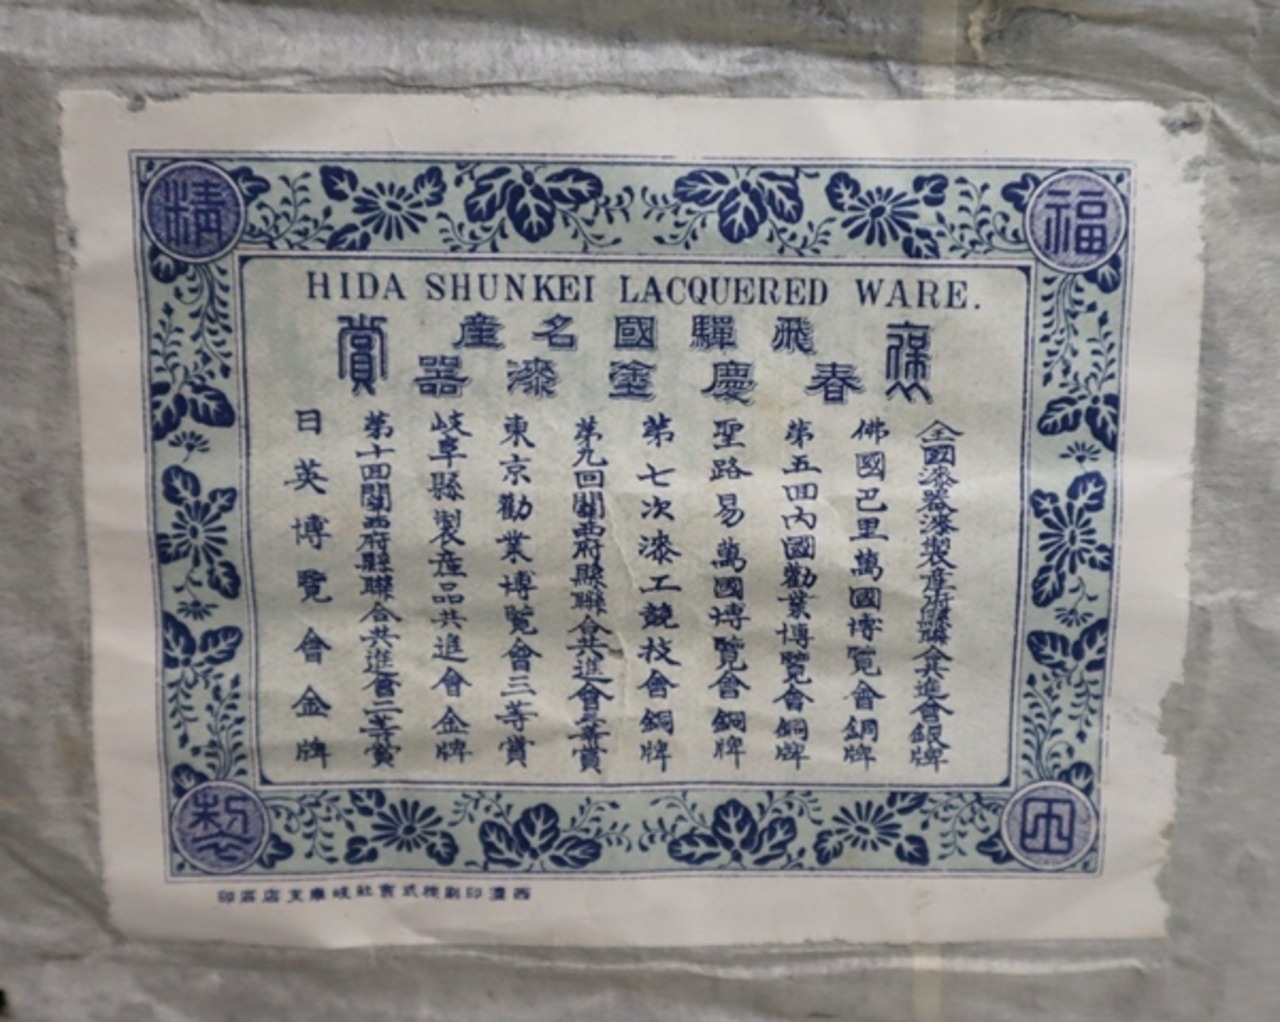 HIDA SHUNKEI LACQUERED WARE.
褒賞
飛驒國名産
春慶塗漆器
全國漆器漆製産府縣聯合共進會銀牌
佛國巴里萬國博覽會銅牌
第五回内國勸業博覽會銅牌
聖路易萬國博覽會銅牌
第七次漆工競技會銅牌
第九回關西府縣聯合共進會三等賞
東京勸業博覽會三等賞
岐阜縣製産品共進會金牌
第十回關西府縣聯合共進會二等賞
日英博覽會金牌
福
田
精
製
西濃印刷株式會社岐阜支店石印